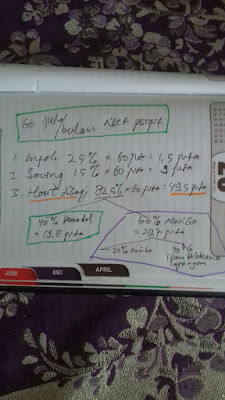 60 juta/
bulan nett profit
1. Infak 2.5% x 60 juta = 1,5 juta
2. Saving 15% x 60 juta = 9 juta
3. Hasil dibagi 82.5% x 60 juta = 49.5 juta
40% Pemodal
= 19.8 juta
60%
= 29.7 juta
30%
70%
JUNI
MEI
APRIL